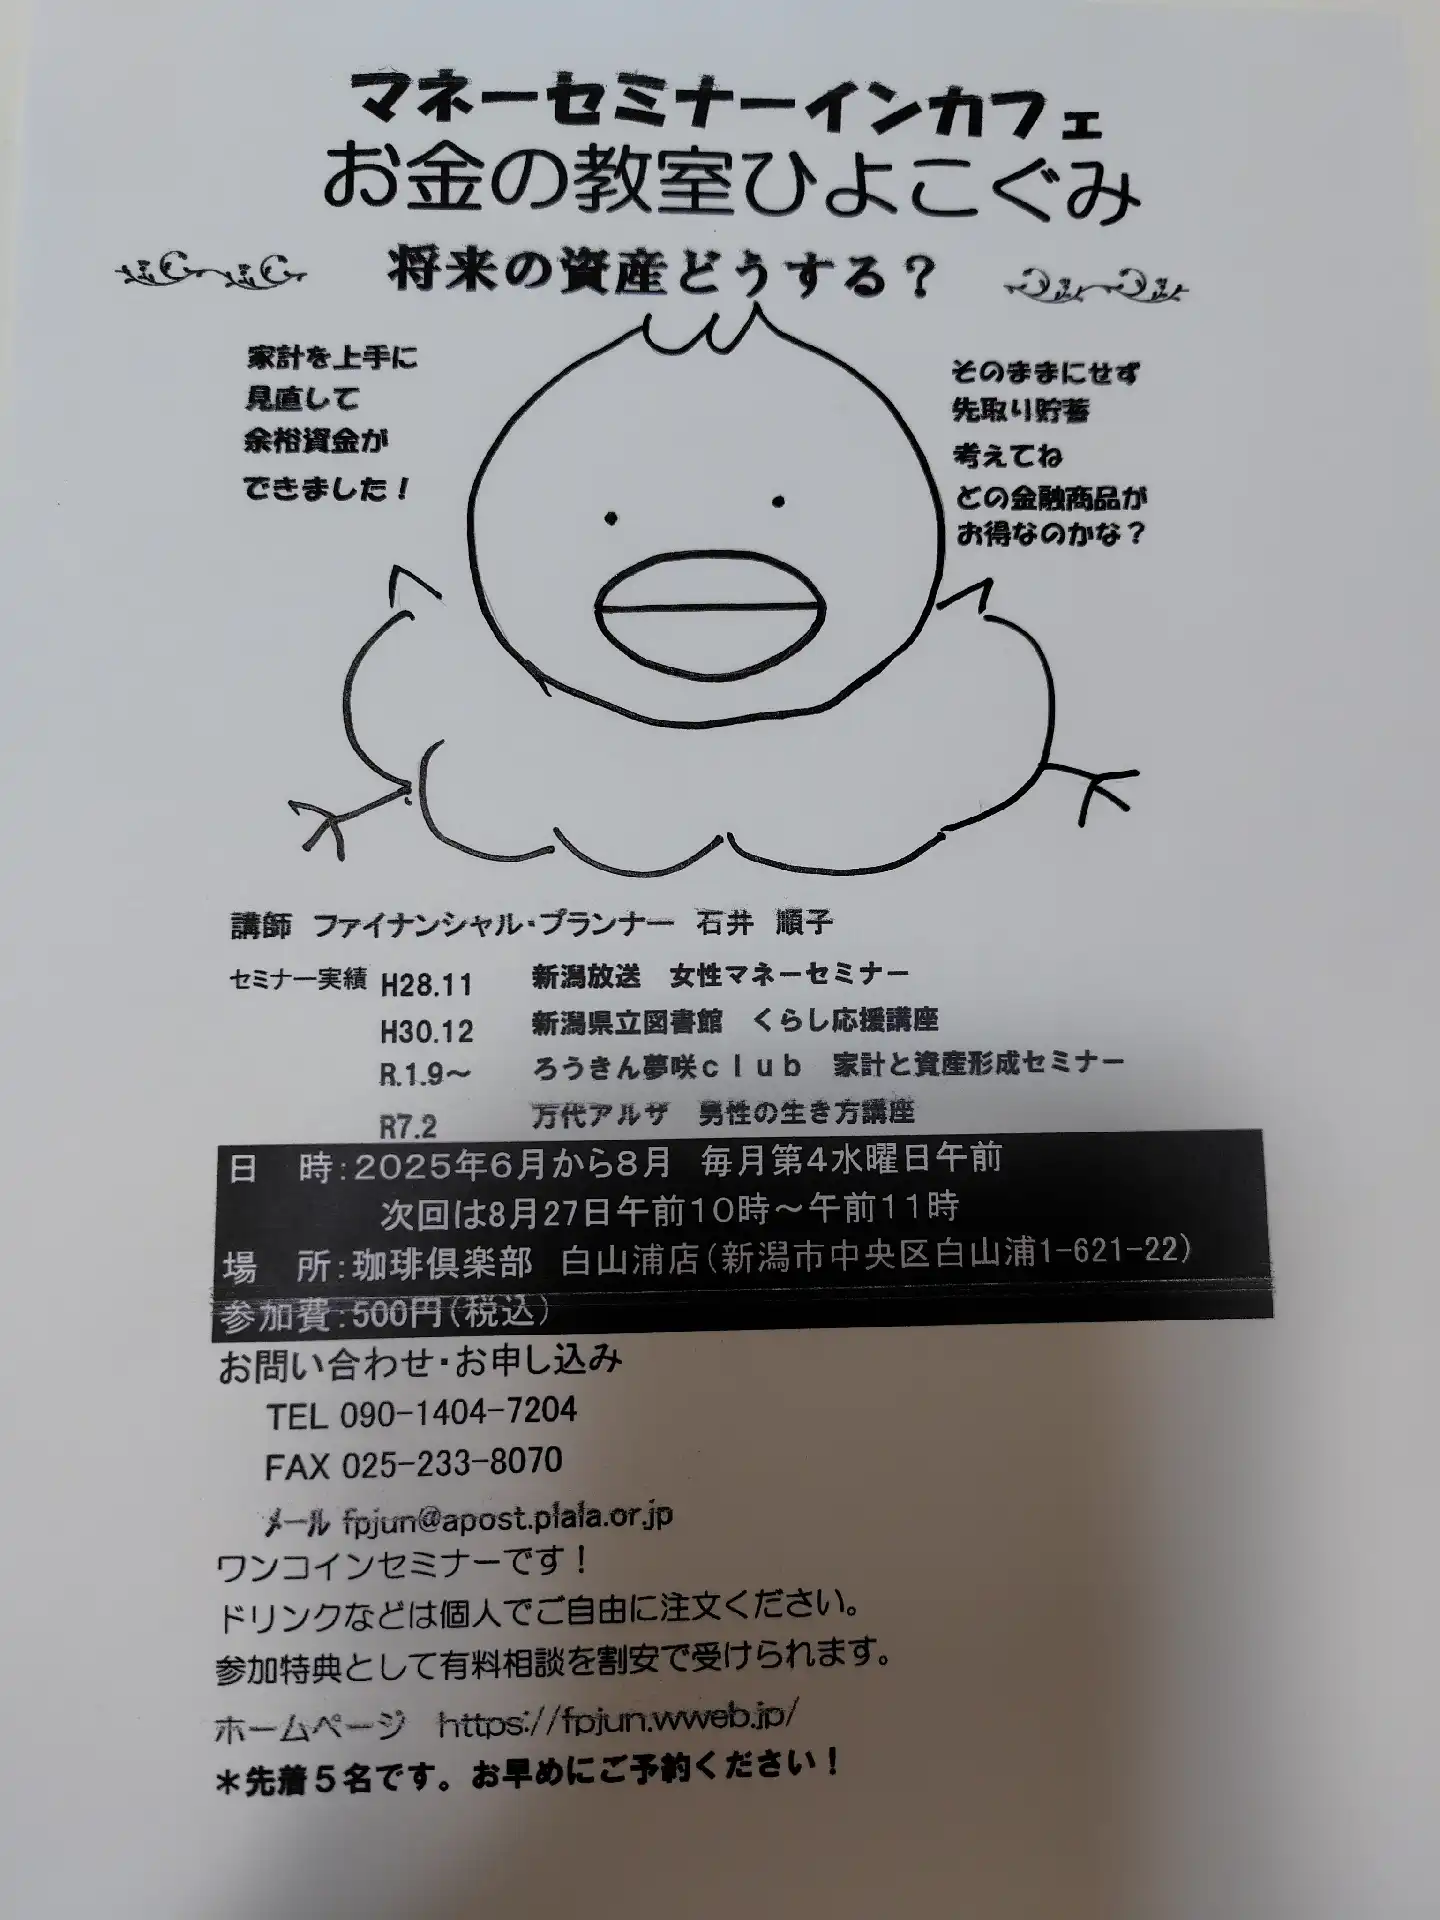 マネーセミナーインカフェ
お金の教室ひよこぐみ
将来の資産どうする？
家計を上手に
見直して
余裕資金が
できました！
そのままにせず
先取り貯蓄
考えてね
どの金融商品が
お得なのかな？
講師　ファイナンシャル・プランナー　石井　順子
セミナー実績　H28.11　新潟放送　女性マネーセミナー
H30.12　新潟県立図書館　くらし応援講座
R.1.9～　ろうきん夢咲ｃｌｕｂ　家計と資産形成セミナー
R7.2　万代アルザ　男性の生き方講座
日　時：２０２５年６月から８月　毎月第４水曜日午前
次回は8月27日午前１０時～午前１１時
場　所：珈琲倶楽部　白山浦店（新潟市中央区白山浦1-621-22）
参加費：500円（税込）
お問い合わせ・お申し込み
TEL 090-1404-7204
FAX 025-233-8070
ﾒｰﾙ fpjun@apost.plala.or.jp
ワンコインセミナーです！
ドリンクなどは個人でご自由に注文ください。
参加特典として有料相談を割安で受けられます。
ホームページ　https://fpjun.wweb.jp/
＊先着５名です。お早めにご予約ください！